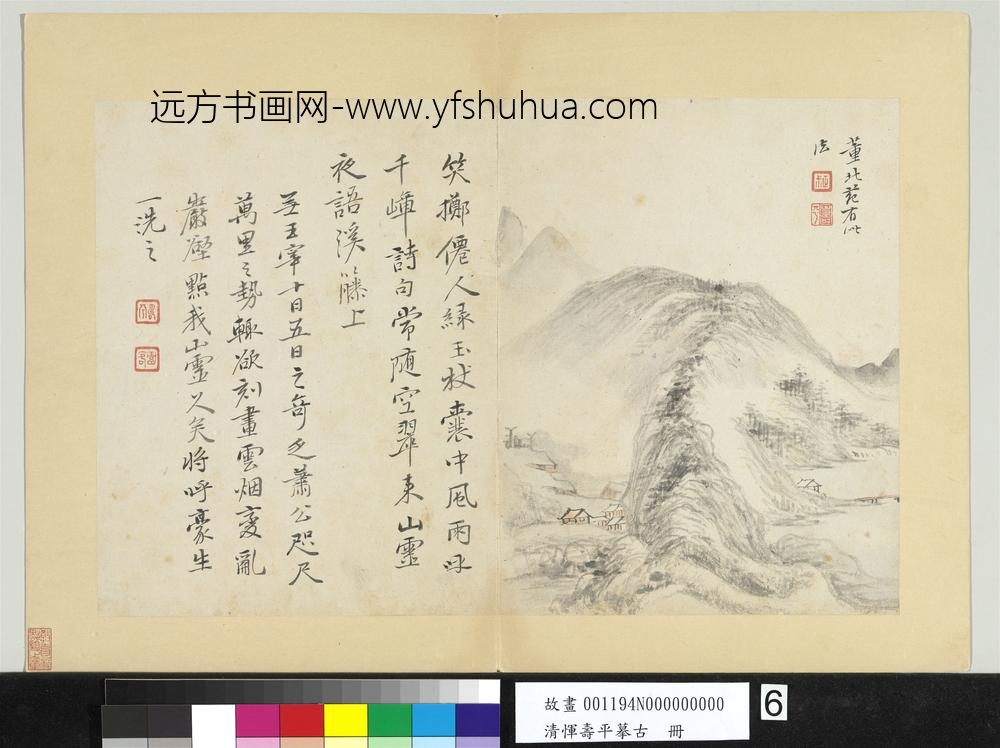 远方书画网-www.yfshuhua.com
董北苑有此
法
笑擲僊人緑玉杖囊中風雨咏
千峰詩句常随空翠来山靈
夜語溪藤上
無王宰十日五日之奇乏蕭公咫尺
萬里之勢輙欲刻畫雲烟変亂
巖壑點我山靈久矣将呼豪生
一洗之
故畫 001194N000000000
清惲壽平摹古 冊
6